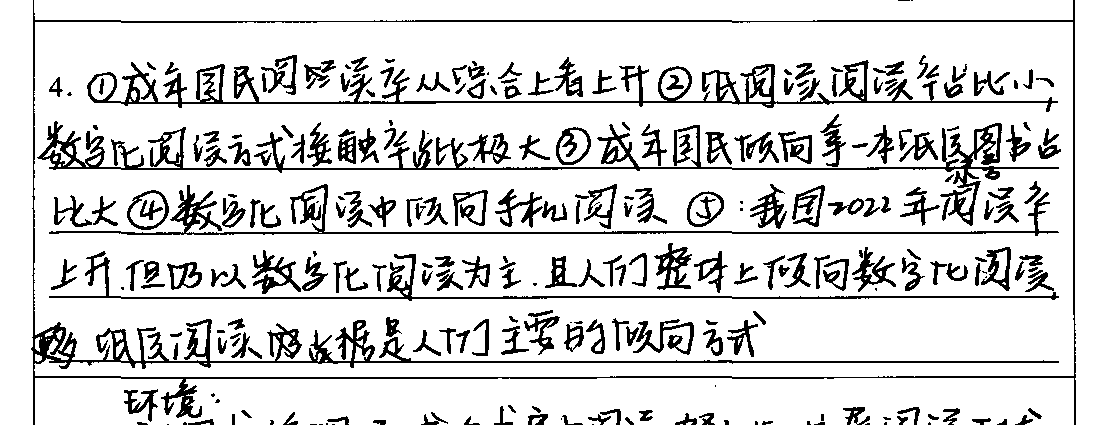 4. ①成年国民阅读率从综合上看上升②纸阅读阅读率占比小,
数字化阅读方式接触率占比极大③成年国民倾向拿一本纸质图书占
比大④数字化阅读中倾向手机阅读 ⑤:我国2022年阅读率
上升.但仍以数字化阅读为主.且人们整体上倾向数字化阅读,
纸质阅读 是人们主要的倾向方式
环境: